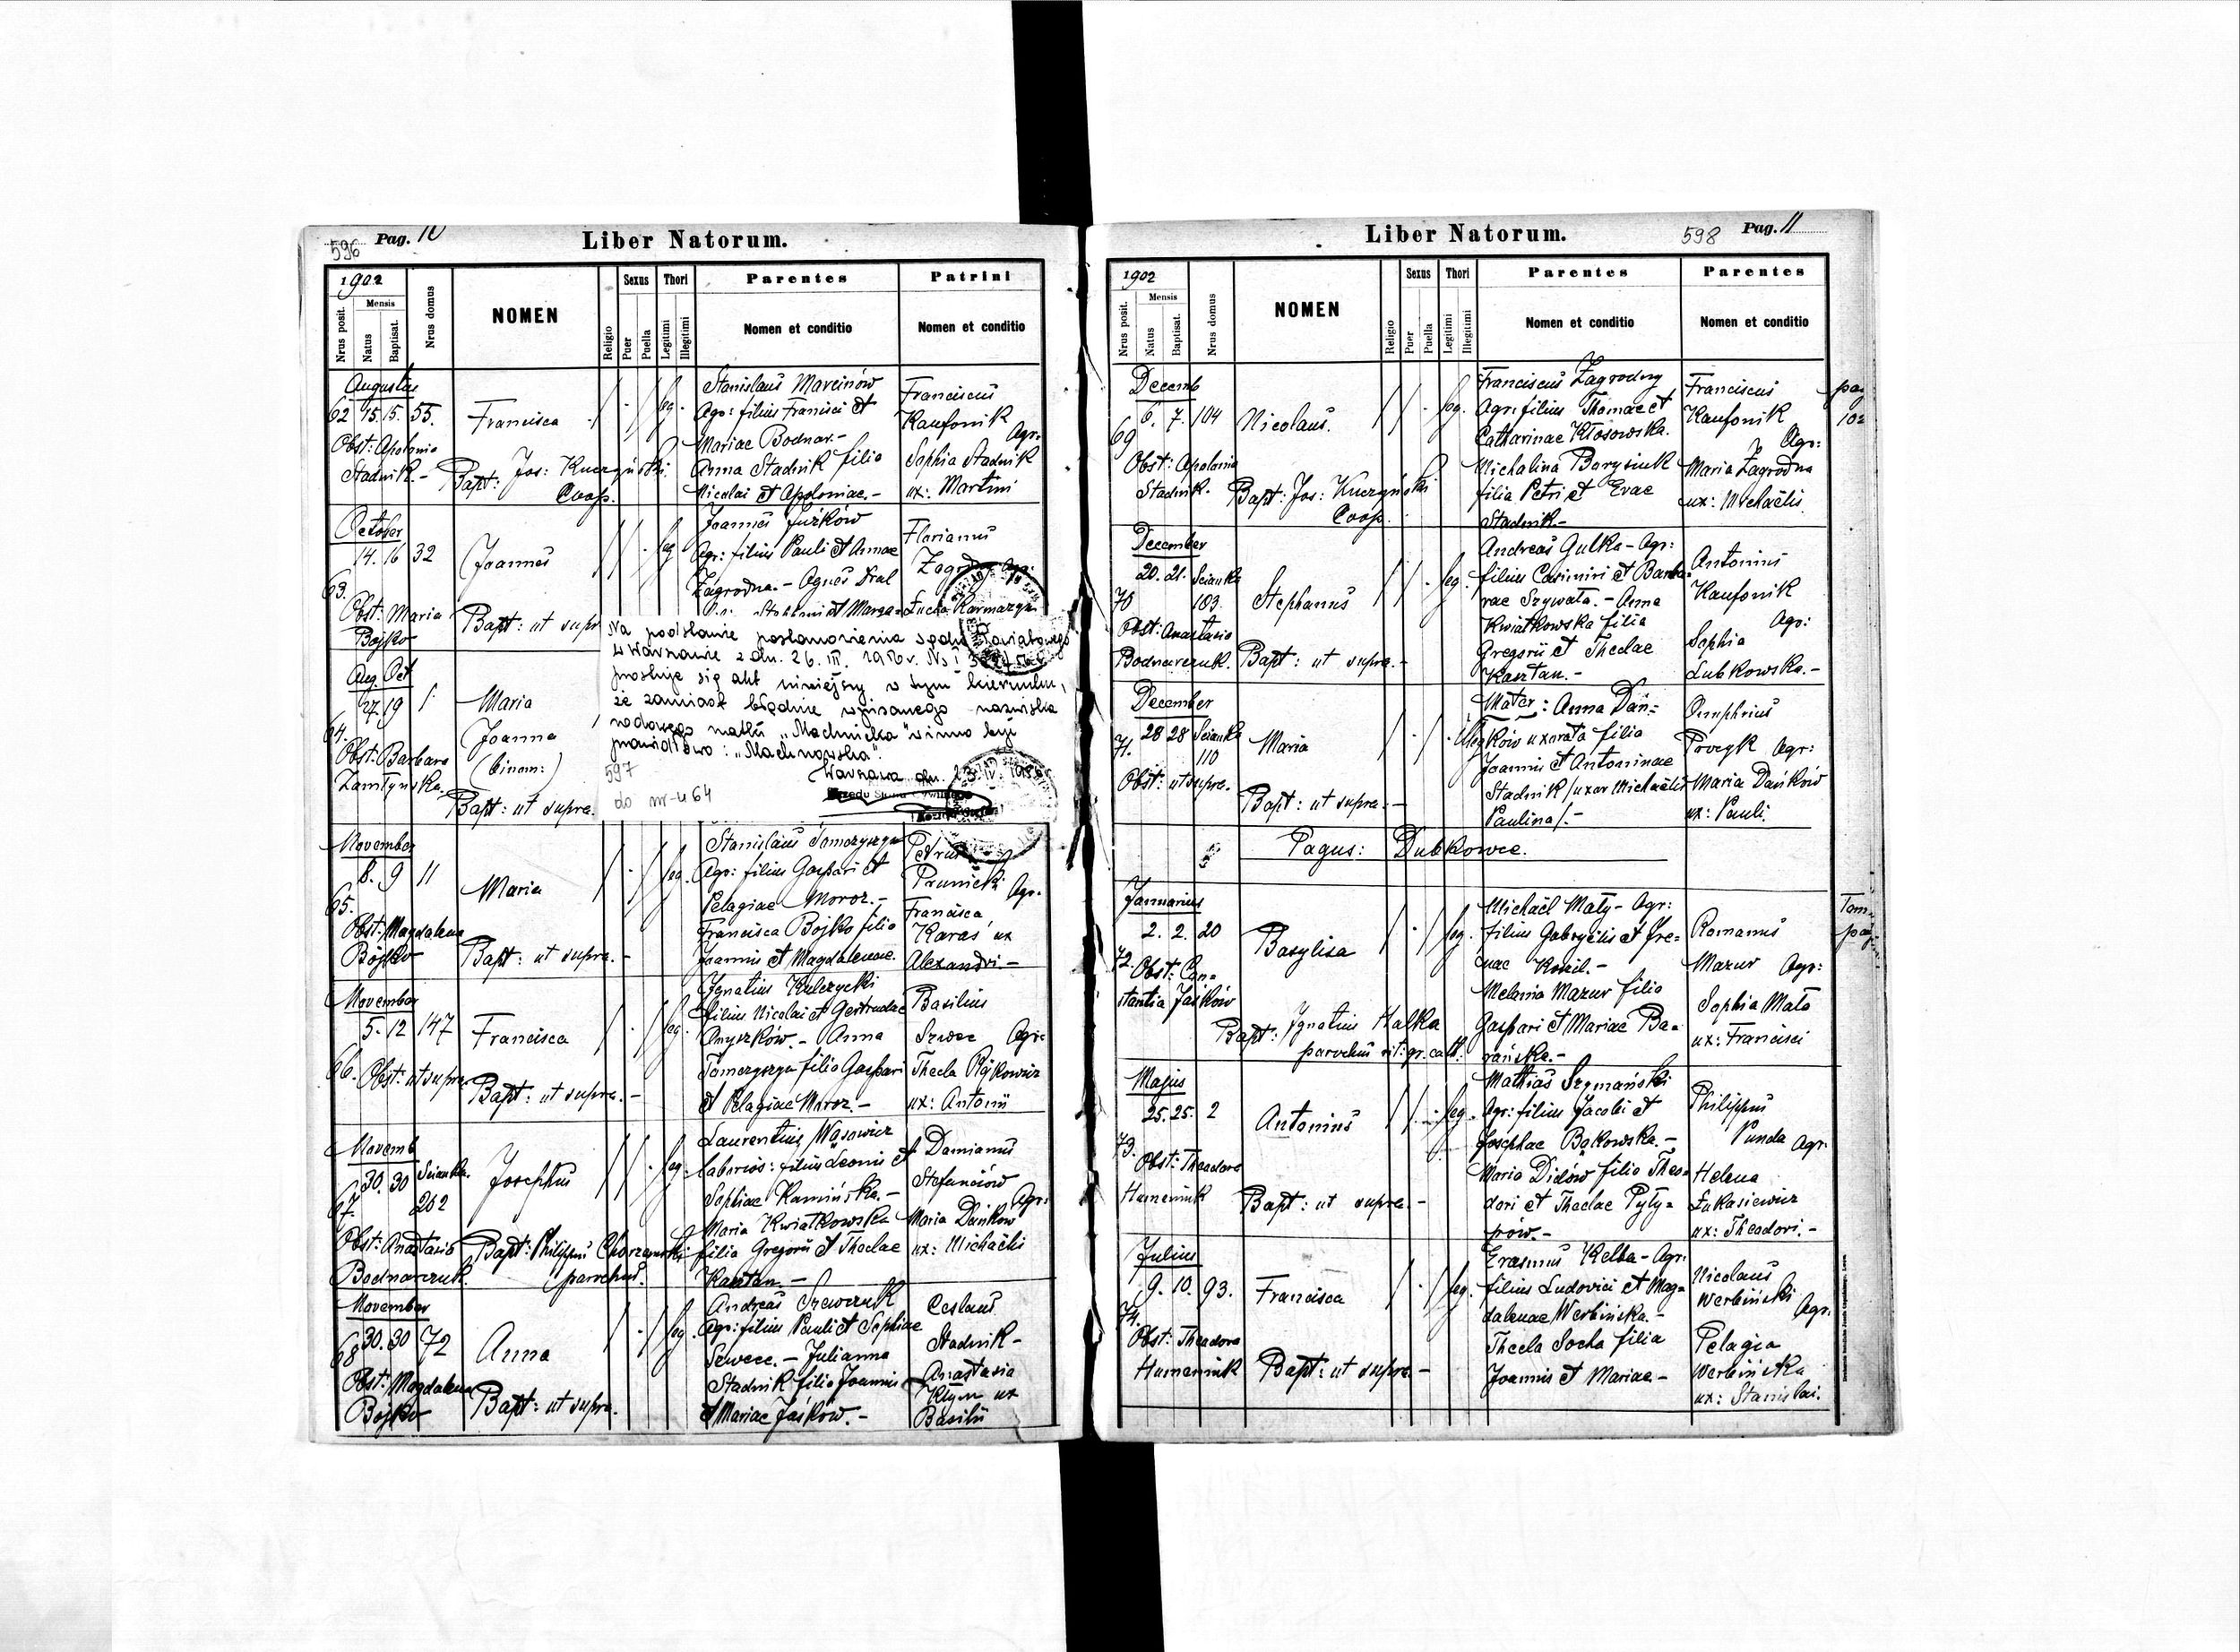 596 Pag. 10
Liber Natorum.
1902
Mensis
Nrus posit.
Natus
Baptisat.
Nrus domus
NOMEN
Religio
Sexus
Puer
Puella
Thori
Legitimi
Illegitimi
Parentes
Nomen et conditio
Patrini
Nomen et conditio
Augustus
62 15. 15. 55.
Obst: Apolonia
Stadnik.-
Francisca
Bapt: Jos: Kuczyński
Coop.
leg.
Stanislaus Marcinów
Agr: filius Francisci et
Mariae Bodnar.-
Anna Stadnik filia
Nicolai et Apoloniae.-
Franciscus
Kaufonik
Agr:
Sophia Stadnik
ux: Martini
October
14. 16 32
63.
Obst: Maria
Bojko
Joannes
Bapt: ut supr
leg
Joannes Juźków
Agr: filius Pauli et Annae
Zagrodna.- Agnes Dral
Florianus
Zagrodny Agr:
Lucia Karmazyn
Na podstawie postanowienia Sądu Powiatowego
w Warszawie z dn. 26. III. 1956 r. Ns I
prostuje się akt niniejszy w tym kierunku,
że zamiast błędnie wpisanego nazwiska
rodowego matki "Machnicka" winno być
prawidłowo: "Machnowska".
Warszawa dn. 23. IV. 1956
597
do nr-u 64
Aug. Oct
27. 19 1
64.
Obst: Barbara
Zamłynska.
Maria
Joanna
(binom:)
Bapt: ut supra.
November
8. 9 11
65.
Obst: Magdalena
Bojko
Maria
Bapt: ut supra.-
leg.
Stanislaus Tomczyszyn
Agr: filius Gaspari et
Pelagiae Moroz.-
Francisca Bojko filia
Joannis et Magdalenae.
Petrus
Prunicki Agr.
Francisca
Karaś ux
Alexandri.-
November
5. 12 147
66. Obst: ut supra
Francisca
Bapt: ut supra.-
leg.
Ignatius Kulczycki
filius Nicolai et Gertrudae
Onyszków.- Anna
Tomczyszyn filia Gaspari
et Pelagiae Moroz.-
Basilius
Szwec Agr:
Thecla Rójkowicz
ux: Antonii
Novemb
30. 30 Scianka.
67. 202
Obst: Anastasia
Bodnarczuk.
Josephus
Bapt: Philippus Chorzemski
parochus.
leg.
Laurentius Wąsowicz
laborios: filius Leonis et
Sophiae Kamińska.-
Maria Kwiatkowska
filia Gregorii et Theclae
Kasztan.-
Damianus
Stefanciów
Agr:
Maria Dańków
ux: Michaëlis
November
68 30. 30 72
Obst: Magdalena
Bojko
Anna
Bapt: ut supra.
leg.
Andreas Szewczuk
Agr: filius Pauli et Sophiae
Szwec.- Julianna
Stadnik filia Joannis
et Mariae Jaśków.-
Ceslaus
Stadnik-
Anastasia
Kłym ux
Basilii
Liber Natorum.
598 Pag. 11
1902
Mensis
Nrus posit.
Natus
Baptisat.
Nrus domus
NOMEN
Religio
Sexus
Puer
Puella
Thori
Legitimi
Illegitimi
Parentes
Nomen et conditio
Parentes
Nomen et conditio
Decemb
6. 7. 104
69
Obst: Apolonia
Stadnik.
Nicolaus.
Bapt: Jos: Kuczyński
Coop.
leg.
Franciscus Zagrodny
Agr: filius Thomae et
Catharinae Kłosowska.
Michalina Borysiuk
filia Petri et Evae
Stadnik.-
Franciscus
Kaufonik
Agr:
Maria Zagrodna
ux: Michaëlis
December
20. 21. Scianka
70 103.
Obst: Anastasia
Bodnarczuk.
Stephanus
Bapt: ut supra.-
leg.
Andreas Gulka- Agr:
filius Casimiri et Barba=
rae Szywała.- Anna
Kwiatkowska filia
Gregorii et Theclae
Kasztan.-
Antonius
Kaufonik
Agr:
Sophia
Lubkowska.-
December
28 28 Scianka
71. 110
Obst: ut supra.
Maria
Bapt: ut supra.-
Illeg
Mater: Anna Dań=
ków uxorata filia
Joannis et Antoninae
Stadnik /uxor Michaëlis
Paulina/.-
Onuphrius
Agr:
Maria Dańków
ux: Pauli.
Pagus: Dubkowce.
Januarius
2. 2. 20
72. Obst: Con=
stantia Jaśków
Basylisa
Bapt: Ignatius Halka
parochus rit: gr. cath.
leg.
Michaël Mały- Agr:
filius Gabryëlis et Ire=
nae Kozil.-
Melania Mazur filia
Gaspari et Mariae Ba=
rańska.-
Romanus
Mazur Agr:
Sophia Mała
ux: Francisci
Majus
25. 25. 2
73.
Obst: Theodora
Humeniuk
Antonius
Bapt: ut supra.-
leg.
Mathias Szymański
Agr: filius Jacobi et
Josephae Bąkowska.-
Maria Didów filia Theo=
dori et Theclae Pyły=
pów.-
Philippus
Punda Agr.
Helena
Łukasiewicz
ux: Theodori.-
Julius
9. 10. 93.
74.
Obst: Theodora
Humeniuk
Francisca
Bapt: ut supra.-
leg.
Erasmus Kelba- Agr:
filius Ludovici et Mag=
dalenae Werbińska.-
Thecla Socha filia
Joannis et Mariae-
Nicolaus
Werbiński Agr:
Pelagia
Werbińska
ux: Stanislai.